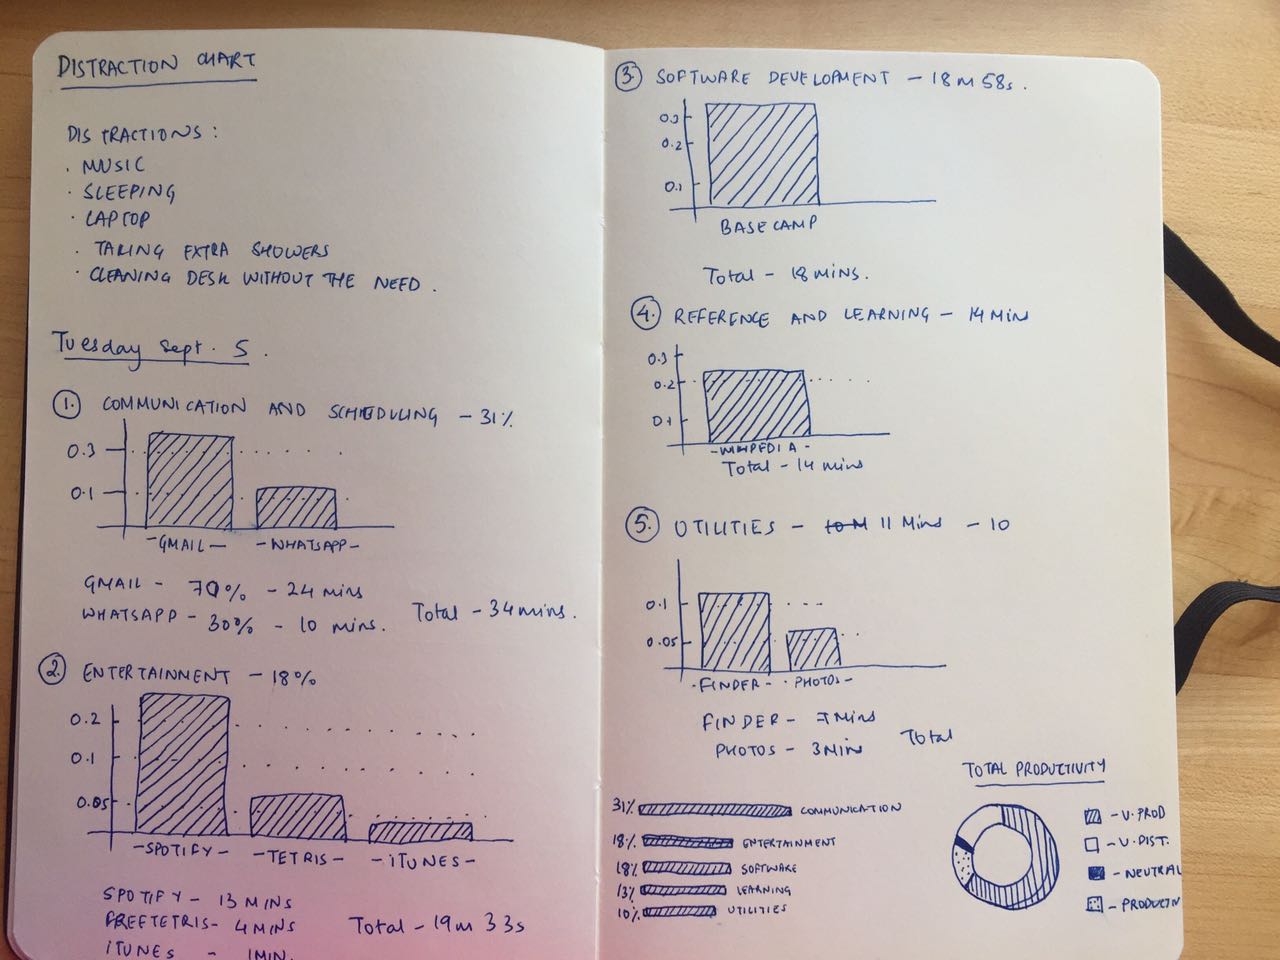 DISTRACTION CHART
DISTRACTIONS:
· MUSIC
· SLEEPING
· LAPTOP
· TAKING EXTRA SHOWERS
· CLEANING DESK WITHOUT THE NEED.
Tuesday Sept. 5.
1. COMMUNICATION AND SCHEDULING - 31%
0.3
0.1
-GMAIL- -WHATSAPP-
GMAIL - 70% - 24 mins
WHATSAPP - 30% - 10 mins.
Total - 34 mins.
2. ENTERTAINMENT - 18%
0.2
0.1
0.05
-SPOTIFY- -TETRIS- -iTUNES-
SPOTIFY - 13 MINS
FREETETRIS - 4 MINS
iTUNES - 1 MIN.
Total - 19m 33s
3. SOFTWARE DEVELOPMENT - 18M 58s.
0.3
0.2
0.1
BASECAMP
Total - 18 MINS.
4. REFERENCE AND LEARNING - 14 Min
0.3
0.2
0.1
-WIKIPEDIA-
Total - 14 mins
5. UTILITIES - 10 M 11 Mins - 10
0.1
0.05
-FINDER- -PHOTOS-
FINDER - 7 Mins
PHOTOS - 3 Min
Total
31% COMMUNICATION
18% ENTERTAINMENT
18% SOFTWARE
13% LEARNING
10% UTILITIES
TOTAL PRODUCTIVITY
- V.PROD
- V.DIST.
- NEUTRAL
- PRODUCTIV